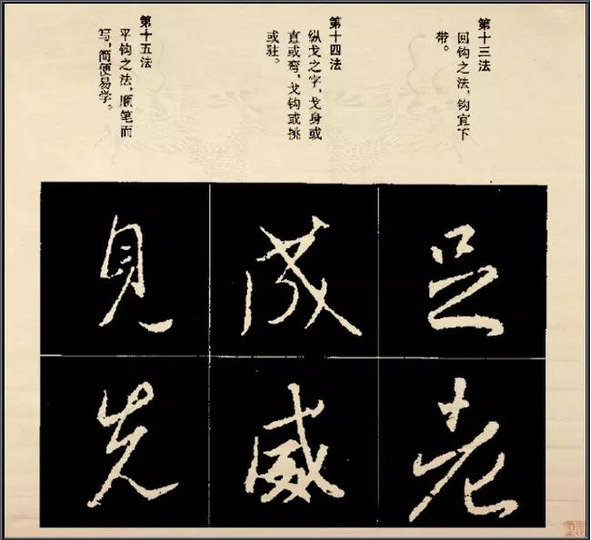 第十三法
回钩之法，钩宜下
带。
第十四法
纵戈之字，戈身或
直或弯，戈钩或挑
或驻。
第十五法
平钩之法，顺笔而
写，简便易学。
足
老
成
威
见
先